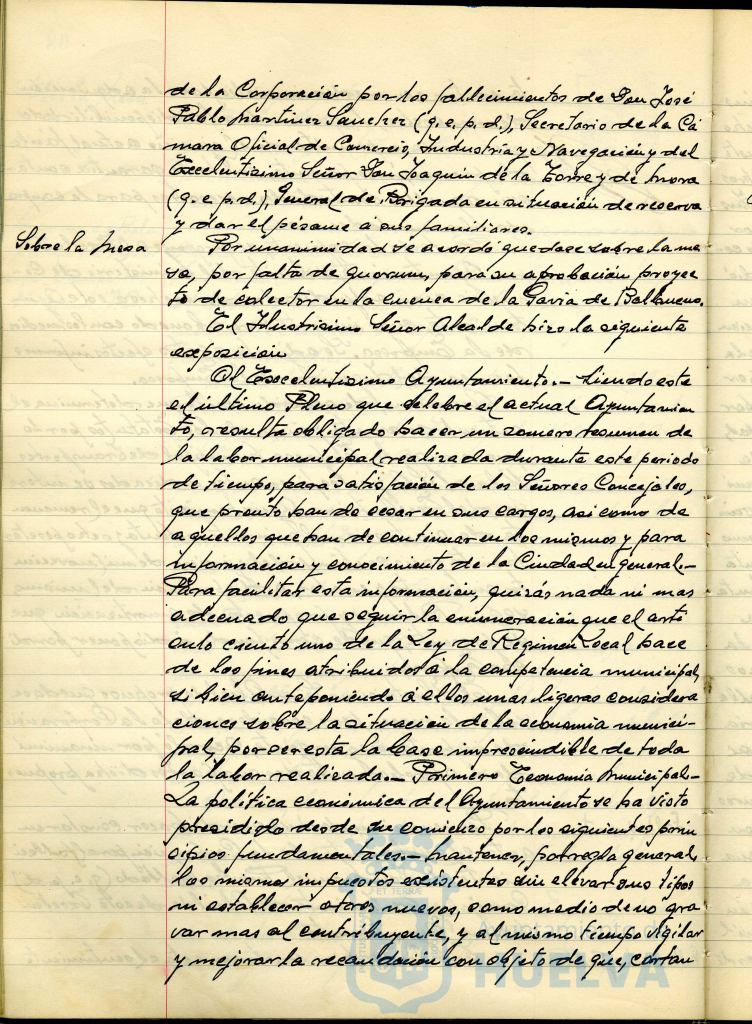 de la Corporación por los fallecimientos de Don José
Pablo Martinez Sanchez (q.e.p.d.), Secretario de la Cá
mara Oficial de Comercio, Industria y Navegación y del
Excelentisimo Señor Don Joaquin de la Torre y de Mora
(q.e.p.d.), General de Brigada en situación de reserva
y dar el pésame á sus familiares.
Sobre la Mesa
Por unanimidad se acordó quedase sobre la me
sa, por falta de quorum, para su aprobación proyec
to de colector en la cuenca de la Gavia de Balbueno.
El Ilustrisimo Señor Alcalde hizo la siguiente
exposición
Al Excelentisimo Ayuntamiento.- Siendo este
el último Pleno que celebre el actual Ayuntamien
to, resulta obligado hacer un somero resumen de
la labor municipal realizada durante este periodo
de tiempo, para satisfación de los Señores Concejales,
que pronto han de cesar en sus cargos, asi como de
aquellos que han de continuar en los mismos y para
información y conocimiento de la Ciudad en general.-
Para facilitar esta información, quizás nada ni mas
adecuado que seguir la enumeración que el arti
culo ciento uno de la Ley de Regimen Local hace
de los fines atribuidos á la competencia municipal,
si bien anteponiendo á ellos unas ligeras considera
ciones sobre la situación de la economia munici-
pal, por ser esta la base imprescindible de toda
la labor realizada.- Primero Economia Municipal.-
La política económica del Ayuntamiento se ha visto
presidido desde su comienzo por los siguientes prin
cipios fundamentales.- Mantener, por regla general,
los mismos impuestos existentes sin elevar sus tipos
ni establecer otros nuevos, como medio de no gra
var mas al contribuyente, y al mismo tiempo vigilar
y mejorar la recaudación con objeto de que, cortan
HUELVA